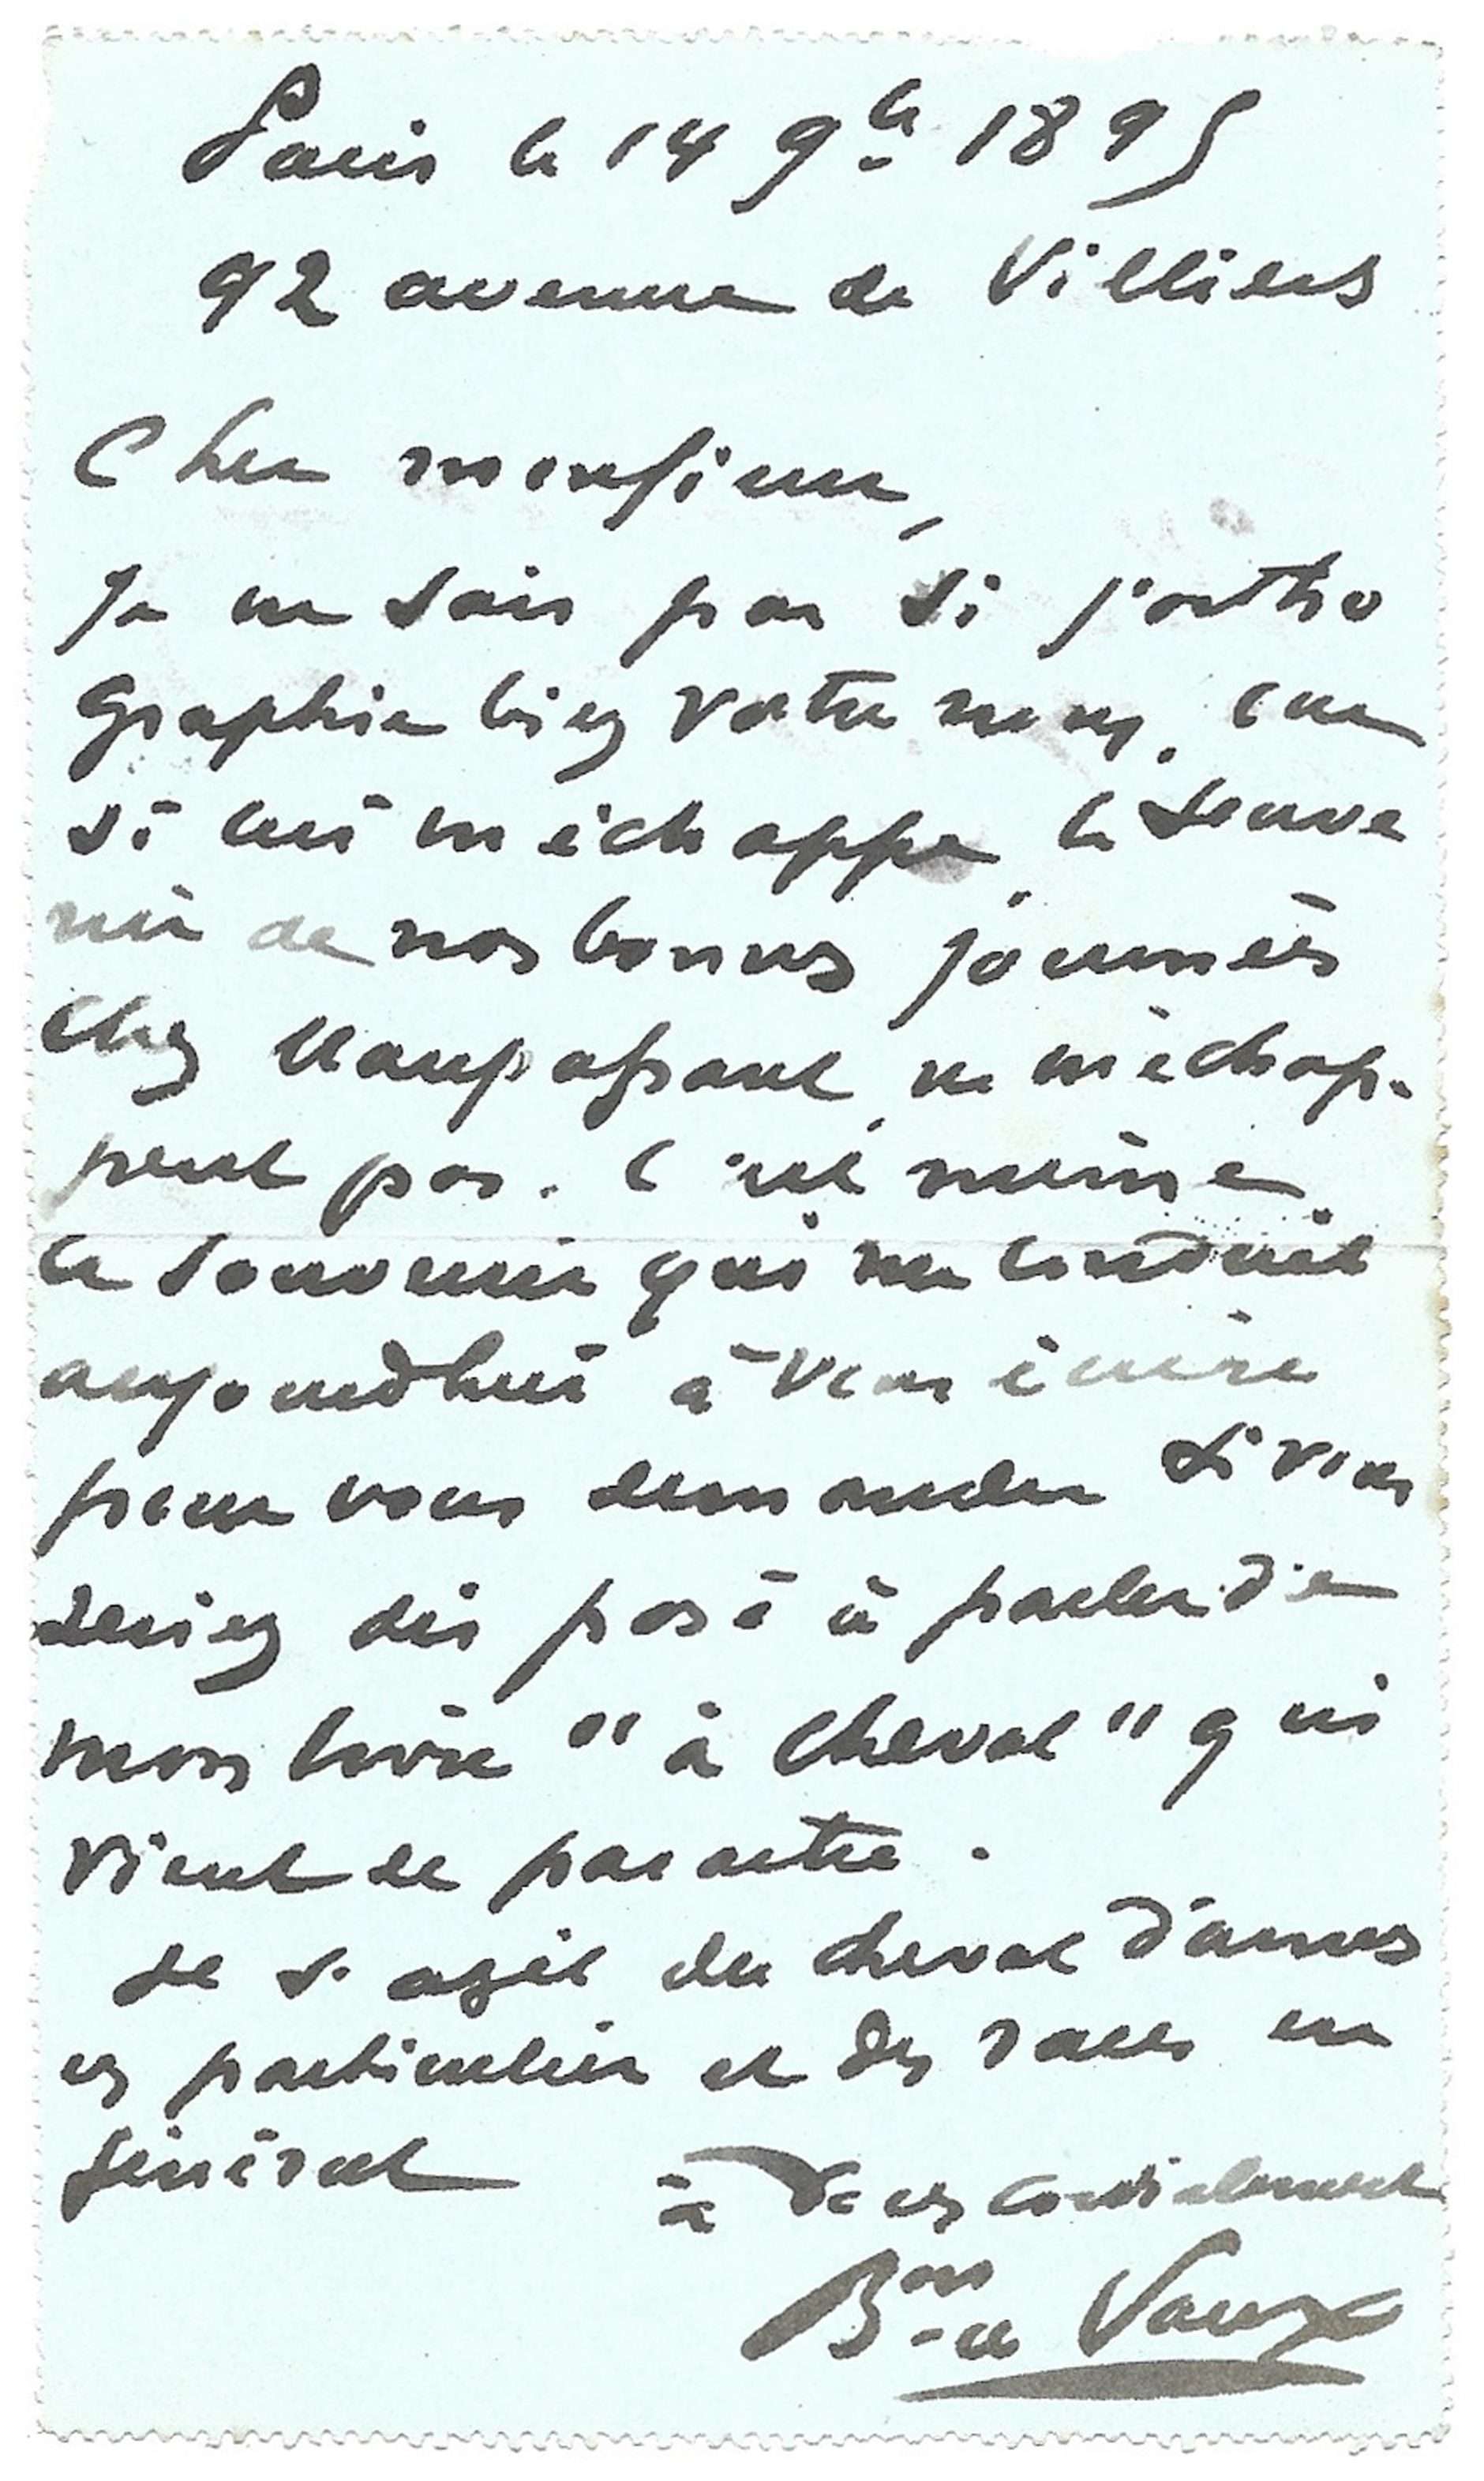 Paris le 14 9bre 1895
92 avenue de Villiers
Cher monsieur,
Je ne sais pas si j'ortho
graphie bien votre nom, car
si lui m'échappe, le souve
nir de nos bonnes journées
chez Maupassant, ne m'échap-
pent pas. C'est même
le souvenir qui me conduit
aujourd'hui à vous écrire
pour vous demander si vous
seriez disposé à parler de
mon livre "à cheval" qui
vient de paraitre.
Il s'agit du cheval d'armes
en particulier et des races en
général
à vous cordialement
Bon de Vaux